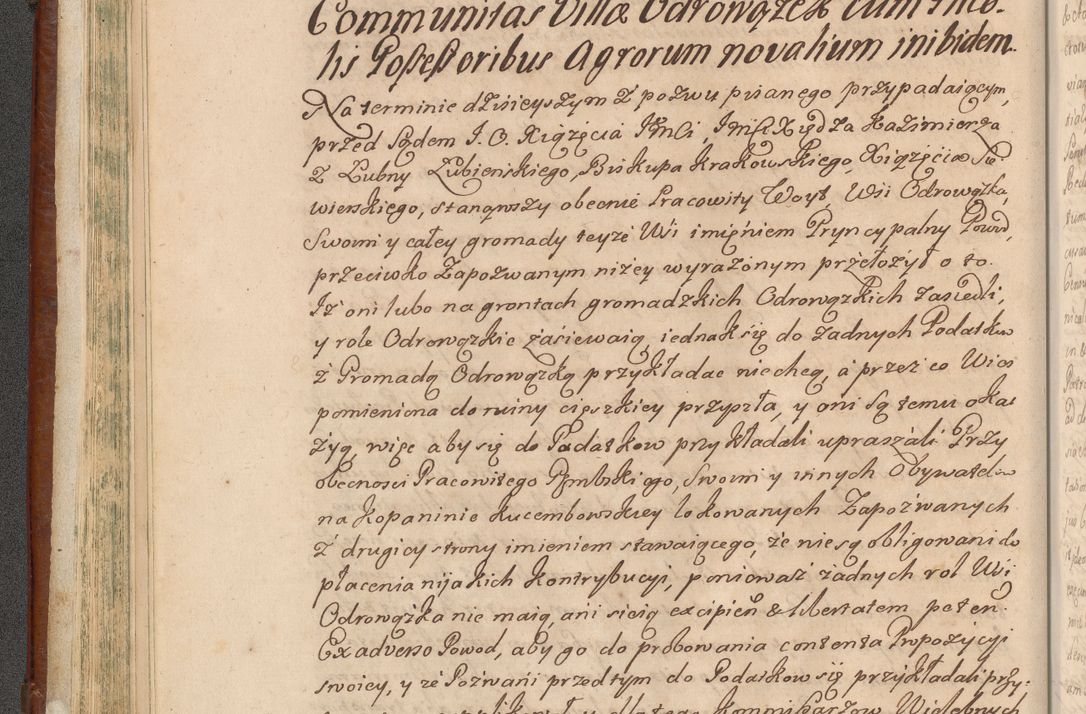 Communitas Villæ Odrowązek cum inco-
lis Possessoribus Agrorum novalium inibidem.
Na terminie dzisieyszym z pozwu pisanego przypadaiącym,
przed Sądem J. O. Xiązęcia JMCi, JmśCi Xiędza Kazimierza
z Łubny Łubienskiego, Biskupa Krakowskiego, Xiązęcia Sie-
wierskiego, stanąwszy obecnie Pracowity Woyt, Wsi Odrowązka,
Swoim y całey gromady teyze Wsi imięniem Pryncypalny Powod,
przeciwko Zapozwanym nizey wyrazonym przełozył o to.
Iz oni lubo na grontach gromadzkich Odrowązkich zasiedli,
y role Odrowązkie zasiewaią, iednak się do zadnych Podatkow
z Gromadą Odrowązką przykładac niechcą, a przez co Wies
pomieniona do ruiny cięszkiey przyszła, y oni są temu oka-
zyą, więc aby się do Podatkow przykładali upraszali Przy
obecnosci Pracowitego swoim y innych Obywatelow
na Kopaninie Kucembowskiey lokowanych Zapozwanych
z drugiey strony imieniem stawaiącego, ze nie są obligowani do
płacenia nijakich kontrybucyi, poniewaz zadnych rol Wsi
Odrowązka nie maią, ani sieią excipień & libertatem peten.
Ex adverso Powod, aby go do probowania contenta Propozycyi
swoiey, y ze Pozwani przedtym do Podatkow się przykładali przy:
y dlatego Kommissarzow Wielebnych